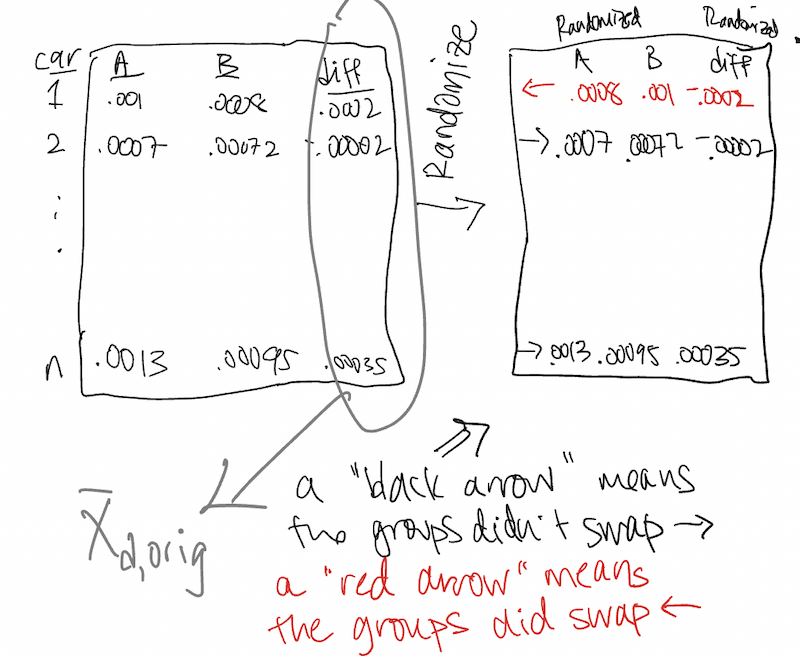 car A B diff
1 .001 .0008 .0002
2 .0007 .00072 -.00002
⋮
n .0013 .00095 .00035
Randomize
→
Randomized Randomized
A B diff
← .0008 .001 -.0002
→ .0007 .0072 -.00002
→ .0013 .00095 .00035
x̄d,orig
a "black arrow" means
the groups didn't swap →
a "red arrow" means
the groups did swap ←